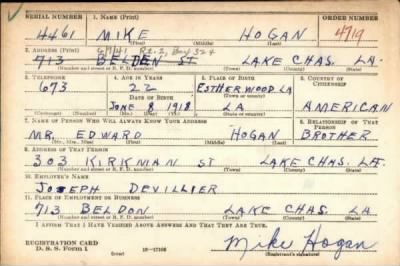 SERIAL NUMBER 1. NAME (Print) ORDER NUMBER
4461 MIKE HOGAN 4719
(First) (Middle) (Last)
2. ADDRESS (Print) Rt. 2, Box 324
713 BELDEN ST LAKE CHAS. LA.
(Number and street or R. F. D. number) (Town) (County) (State)
3. TELEPHONE 4. AGE IN YEARS 5. PLACE OF BIRTH 6. COUNTRY OF CITIZENSHIP
673 22 ESTHERWOOD LA
DATE OF BIRTH (Town or county)
JUNE 8 1918 LA AMERICAN
(Exchange) (Number) (Mo.) (Day) (Yr.) (State or country)
7. NAME OF PERSON WHO WILL ALWAYS KNOW YOUR ADDRESS 8. RELATIONSHIP OF THAT PERSON
MR. EDWARD HOGAN BROTHER
(Mr., Mrs., Miss) (First) (Middle) (Last)
9. ADDRESS OF THAT PERSON
303 KIRKMAN ST LAKE CHAS. LA.
(Number and street or R. F. D. number) (Town) (County) (State)
10. EMPLOYER'S NAME
JOSEPH DEVILLIER
11. PLACE OF EMPLOYMENT OR BUSINESS
713 BELDON LAKE CHAS. LA
(Number and street or R. F. D. number) (Town) (County) (State)
I AFFIRM THAT I HAVE VERIFIED ABOVE ANSWERS AND THAT THEY ARE TRUE.
REGISTRATION CARD
D. S. S. Form 1 (over) 16-17105 Mike Hogan
(Registrant's signature)